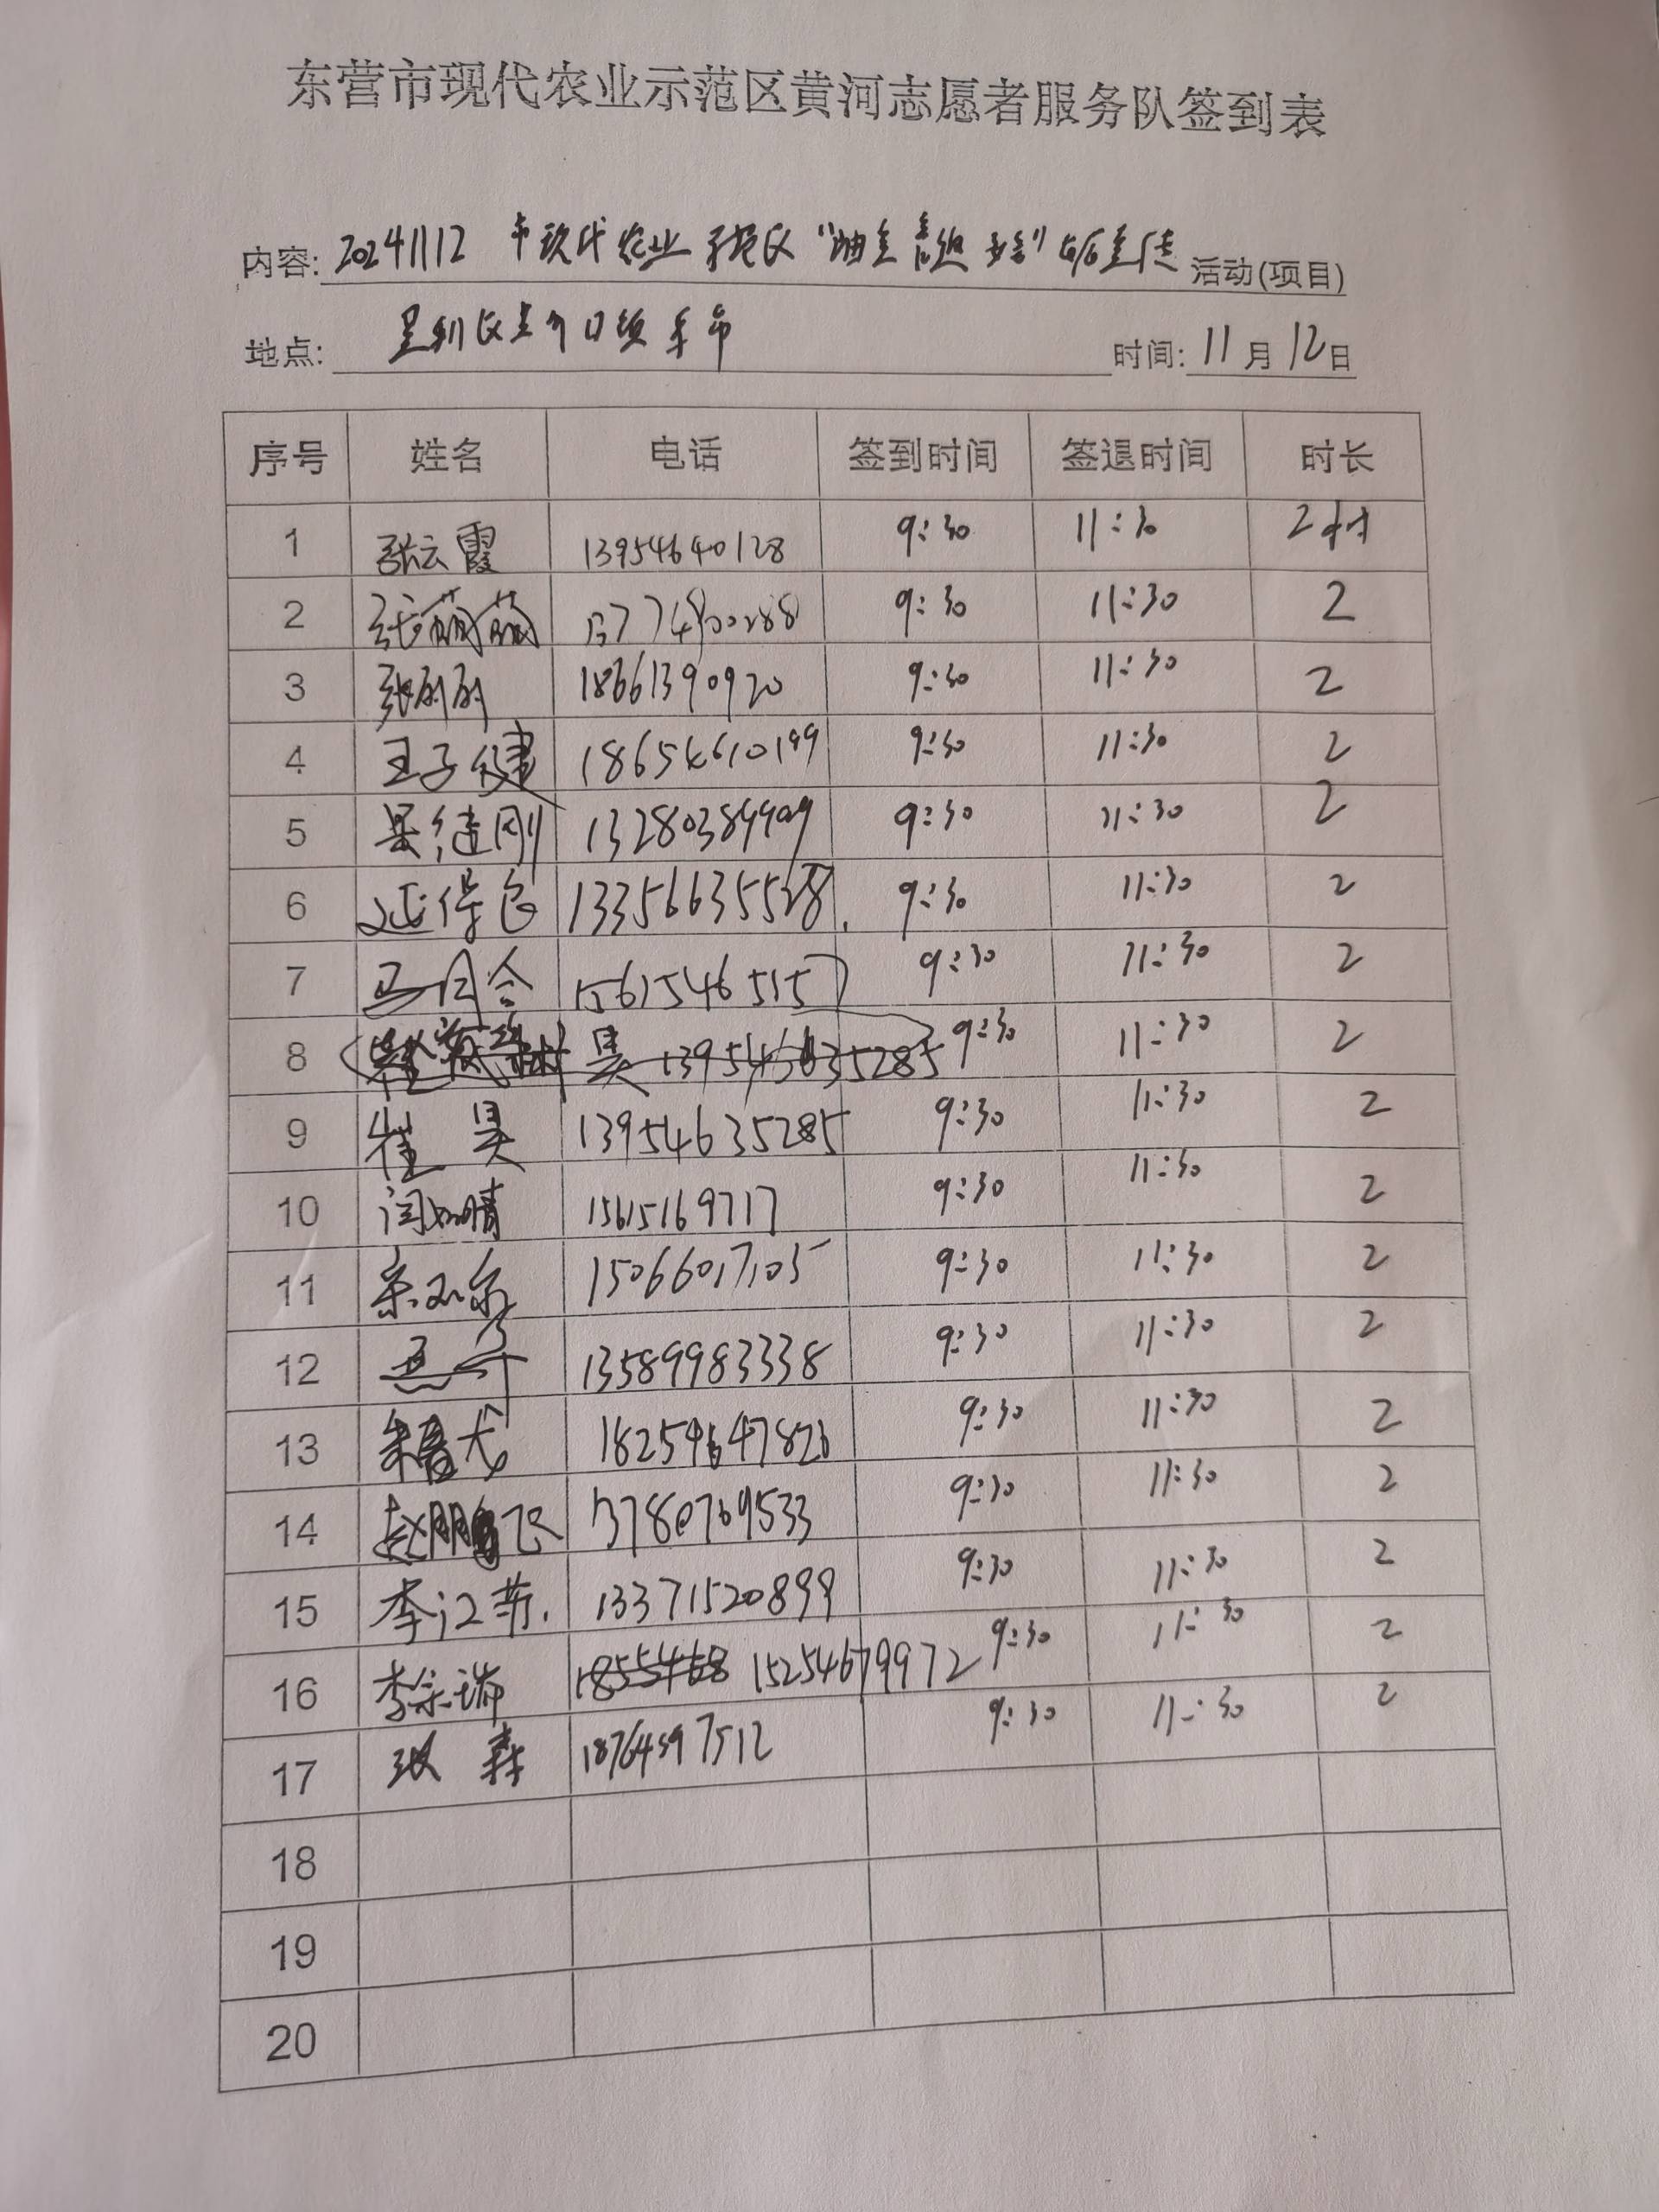 东营市现代农业示范区黄河志愿者服务队签到表
内容: 20241112 市现代农业示范区 宣传 活动(项目)
地点: 垦利区 时间: 11月12日
序号 姓名 电话 签到时间 签退时间 时长
1 张云霞 13954640128 9:30 11:30 2小时
2 张萌萌 9:30 11:30 2
3 张丽丽 18661390920 9:30 11:30 2
4 王子健 18654610199 9:30 11:30 2
5 继刚 9:30 11:30 2
6 9:30 11:30 2
7 15615465157 9:30 11:30 2
8 昊 9:30 11:30 2
9 崔昊 13954635285 9:30 11:30 2
10 闫 晴 15615169717 9:30 11:30 2
11 15066017105 9:30 11:30 2
12 13589983338 9:30 11:30 2
13 9:30 11:30 2
14 赵鹏飞 9:30 11:30 2
15 李江 13371520899 9:30 11:30 2
16 李宗瑞 15254679972 9:30 11:30 2
17 张森 18764597512 9:30 11:30 2
18
19
20